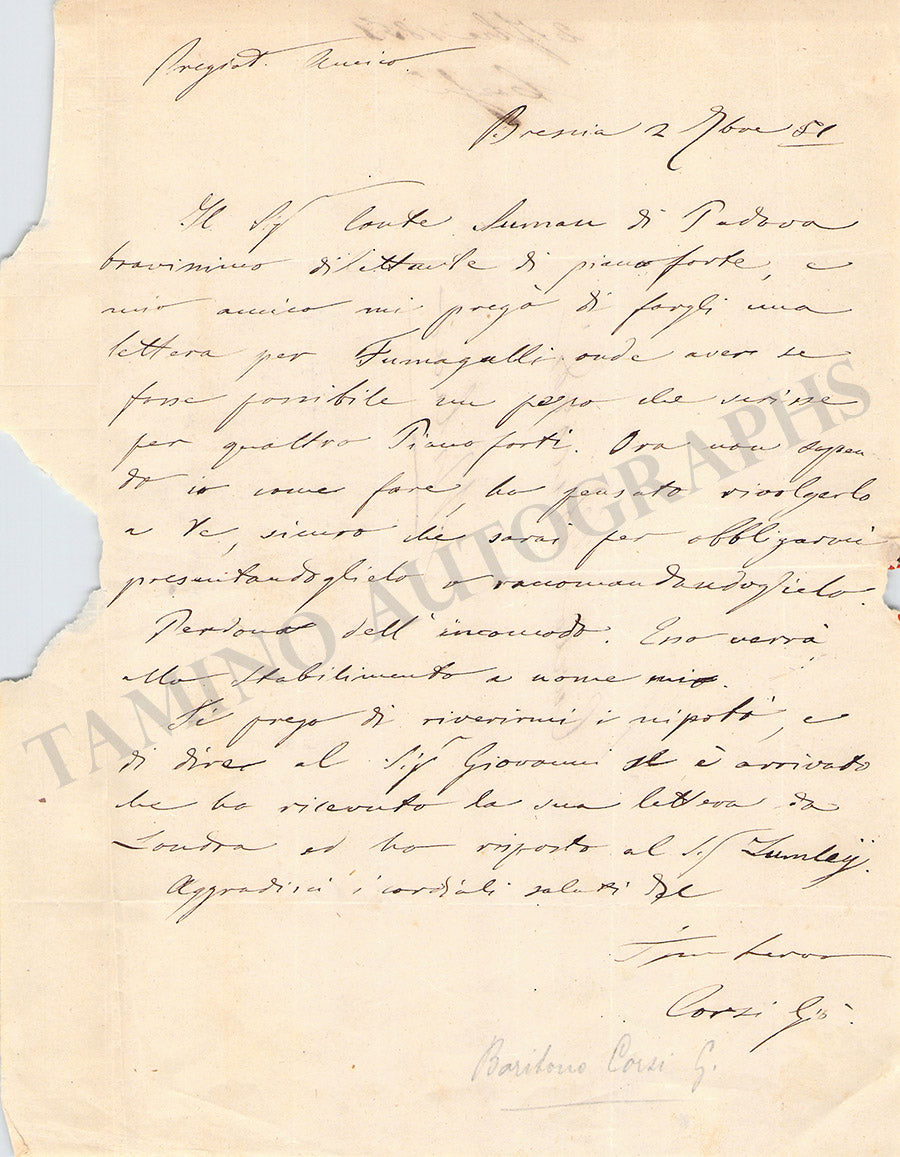 Pregiat. Amico.
Brescia 2 7bre 51
Il Sigr Conte Suman di Padova
bravissimo dilettante di piano forte, e
mio amico mi pregò di fargli una
lettera per Fumagalli onde avere se
fosse possibile un pezzo che scrisse
per quattro Piano forti. Ora non sapen
do io come fare, ho pensato rivolgerlo
a Te, sicuro che sarai per obbligarmi
presentandoglielo o raccomandandoglielo.
Perdona dell' incomodo. Esso verrà
allo Stabilimento a nome mio.
Ti prego di riverirmi i nipoti, e
di dire al Sigr Giovanni è arrivato
che ho ricevuto la sua lettera da
Londra ed ho risposto al Sigr Lumley.
Aggradisci i cordiali saluti del
Tuo
Corsi Gio.
Baritono Corsi G.
TAMINO AUTOGRAPHS